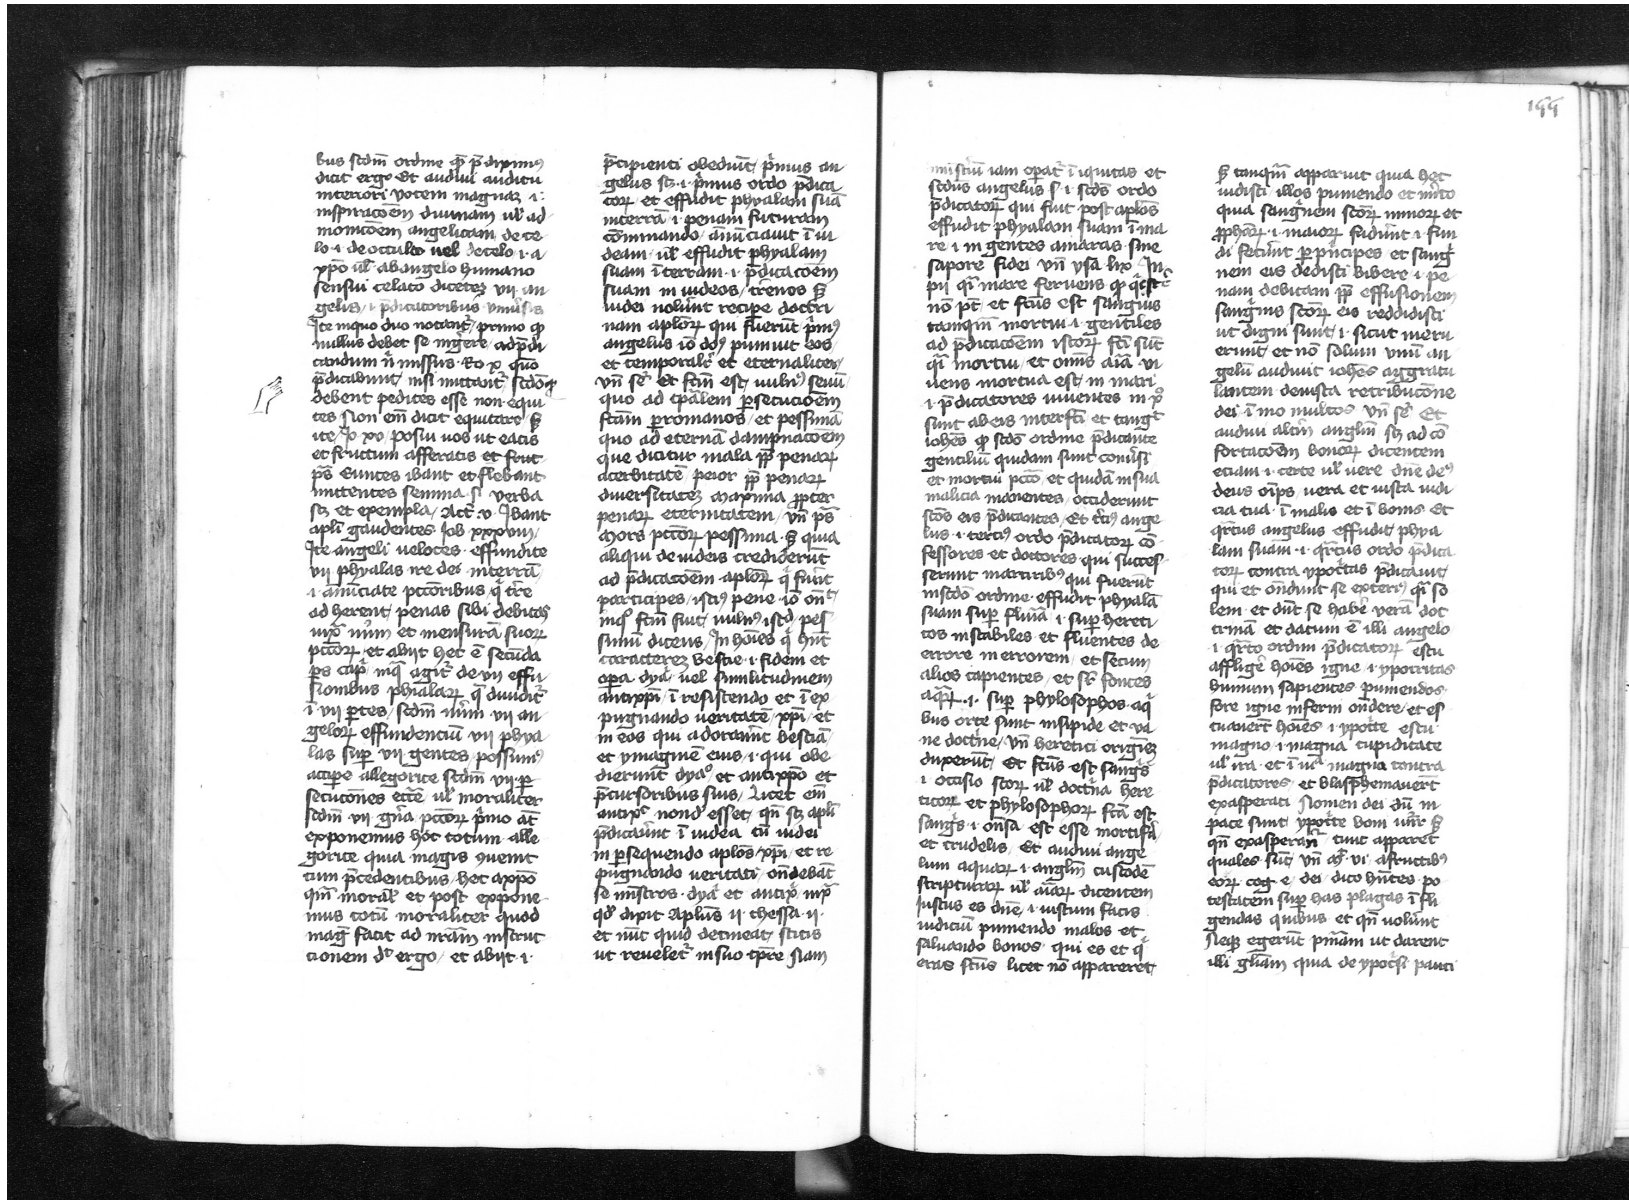 bus scdm ordinē qē p̄diximus
dicit ergo Et audivi auditu
interiori vocem magnaz .i.
inspiracōem divinam ul̄ ad
monicōem angelicam de ce
lo .i. de occulto vel de celo .i. a
xpō ul̄ ab angelo humano
sensui celato dicetez vii an
gelis .i. p̄dicatoribus univ̄sis
Ite in quo duo notant̄ primo qp
nullus debet se ingerē ad p̄di
candum n̄ missus Ro x quō
p̄dicabunt nisi mittant̄ scdō qp
debent pedites esse non equi
tes non em̄ dicit equitate s3
ite Jo xv posui vos ut eatis
et fructum afferatis et fruc
ps̄ Euntes ibant et flebant
mittentes semina .s. verba
s3 et exempla Act̄ v Ibant
apl̄i gaudentes Iob xxxviii
Ite angeli veloces effundite
vii phyalas ire dei in terrā
.i. annūciate pctōribus q̄ tr̄e
ad herent penas sibi debitas
iuxᵃ nūm et mensurā suorꝝ
pctōrꝝ et abiit hec ē secūda
ps̄ capⁱ in q̄ agit̄ de vii effu
sionibus phialarꝝ q̄ dividit̄
ī vii ptes scdm nūm vii an
gelorꝝ effundenciū vii phya
las sup̄ vii gentes possumus
accipe allegorice scdm vii p̄
secuciōnes ecc̄e ul̄ moraliter
scdm vii gn̄a pctōrꝝ p̄mo at̄
exponemus hoc totum alle
gorice quia magis 9venit
cum p̄cedentibus hec a xpō
qm̄ moral̄r et post expone
mus totū moraliter quod
maḡ facit ad nr̄am instruc
cionem d᷎ ergo et abiit .i.
p̄cipienti obediūt p̄mus an
gelus s3 .i. p̄mus ordo p̄dica
torꝝ et effudit phyalam suā
in terrā .i. penam futuram
cōminando annūciavit ī iu
deam ul̄ effudit phyalam
suam ī terram .i. p̄dicacōem
suam in iudeos t̄renos s3
iudei nolūt recipe doctri
nam apl̄orꝝ qui fuerūt p̄mꝰ
angelus iō dn̄s punivit eos
et temporalr̄ et eternaliter
un̄ se᷎ Et fcm̄ est vulnꝰ sevū
quo ad tpālem p̄secucōem
fctām p romanos et pessimā
quo ad eternā dampnacōem
que dicitur mala ꝓp̄ penarꝝ
acerbitatē peior ꝓp̄ penarꝝ
diversitatez maxima ꝓpter
penarꝝ eternitatem un̄ ps̄
Mors pctōrꝝ pessima s3 quia
aliqui de iudeis crediderūt
ad p̄dicacōem apl̄orꝝ q̄ fuit
participes istiꝰ pene iō on̄t
in q᷎ fcm̄ fuit vulnꝰ istd᷎ pes
simū dicens In hoīes q᷎ hūt
caracterez bestie .i. fidem et
opa dya᷎ vel similitudinem
antixpi ī resistendo et ī ex
pugnando veritatē xpi et
in eos qui adorarūt bestiā
et ymaginē eius .i. qui obe
dierunt dya᷎ et antixpō et
p̄cursoribus suis Licet em̄
antixꝰ nond᷎ esset qn̄ s3 apl̄i
p̄dicarūt ī iudea tn̄ iudei
in p̄sequendo apl̄os xpi et re
pugnando veritati ondebāt
se mīstros dya᷎ et antix᷎ iuxᵃ
qd᷎ dixit Apl̄us ii thessa ii
et nūc quid detineat scitis
ut revelet̄ in suo tp̄re Nam
misteriū iam opat̄ ī iquitas et
scdus angelus .s. .i. scds ordo
p̄dicatorꝝ qui fuit post apl̄os
effudit phyalam suam ī ma
re .i. in gentes amaras sine
sapore fidei un̄ ysa lix Im
pii qⁱ mare fervens qp qⁱesce᷎
nō pt̄ et fcūs est sanguis
tamqm̄ mortui .i. gentiles
ad p̄dicacōem istorꝝ fcī sūt
qⁱ mortui et omīs aīa vi
vens mortua est in mari
.i. p̄dicatores viventes in xᵒ
sunt ab eis interfcī et tangⁱt
iohēs qp scdō ordine p̄dicante
gentiliū quidam sunt conv̄si
et mortui pctō et quidā in sua
malicia manentes occiderunt
scōs eis p̄dicantes Et t̄ciꝰ ange
lus .i. terciꝰ ordo p̄dicatorꝝ cō
fessores et doctores qui succes
serunt martiribꝰ qui fuerūt
in scdō ordine effudit phyalā
suam sup̄ flumīa .i. sup hereti
cos instabiles et fluentes de
errore in errorem et secum
alios capientes et sr᷎ fontes
aqᵃrꝝ .i. sup̄ phylosophos a q᷎
bus orte sunt insipide et va
ne doctⁱne un̄ heretici originez
duxerūt Et fcūs est sangⁱs
.i. occisio scōrꝝ ul̄ doctⁱna here
ticorꝝ et phylosophorꝝ fcā est
sangⁱs .i. on̄sa est esse mortifa᷎
et crudelis Et audivi ange
lum aquarꝝ .i. anglm̄ custodē
scripturarꝝ ul̄ aīarꝝ dicentem
Iustus es dn̄e .i. iustum facis
iudiciū puniendo malos et
salvando bonos qui es et q᷎
eras scūs licet nō appareret
s3 tanqm̄ apparuit quia hec
iudisti illos puniendo et mⁱto
quia sangⁱnem scōrꝝ minorꝝ et
ꝓphetarꝝ .i. maiorꝝ fudūt .i. fun
di fecūt p p̄ncipes et sangⁱ
nem eis dedisti bibere .i. pe
nam debitam ꝓp̄ effusionem
sangⁱnis scōrꝝ eis reddidisti
ut digni sunt .i. sicut meru
erunt et nō solum unū an
gelū audivit iohēs aggratu
lantem de iusta retribucōne
dei ī mo multos un̄ se᷎ Et
audivi altm̄ anglm̄ s3 ad cō
fortacōem bonorꝝ dicentem
etiam .i. certe ul̄ vere dn̄e deꝰ
deus oīps vera et iusta iudi
cia tua ī malis et ī bonis Et
qᵃrtus angelus effudit phya
lam suam .i. qᵃrtus ordo p̄dica
torꝝ contra ypocⁱtas p̄dicavit
qui et ondunt se exteriꝰ qⁱ so
lem et dn̄t se habē verā doc
trinā et datum ē illi angelo
.i. qᵃrto ordini p̄dicatorꝝ estu
affligē hoīes igne .i. ypocritas
humum sapientes puniendos
fore igne inferni ondere et es
tuaverūt hoīes .i. ypocⁱte estu
magno .i. magna cupiditate
ul̄ ira et ī via magna contra
p̄dicatores et blasphemaverūt
exasperati Nomen dei dū in
pace sunt ypocⁱte boni vidr᷎ s3
qn̄ exasperant̄ tunc apparet
quales sūt un̄ mᵗ vi a fructibꝰ
eorꝝ cog᷎ e᷎ dei dico hn̄tes po
testatem sup has plagas ī fli
gendas quibus et qn̄ volunt
Neqꝫ egerūt pn̄iam ut darent
illi gl̄iam quia de ypocⁱsi pauci